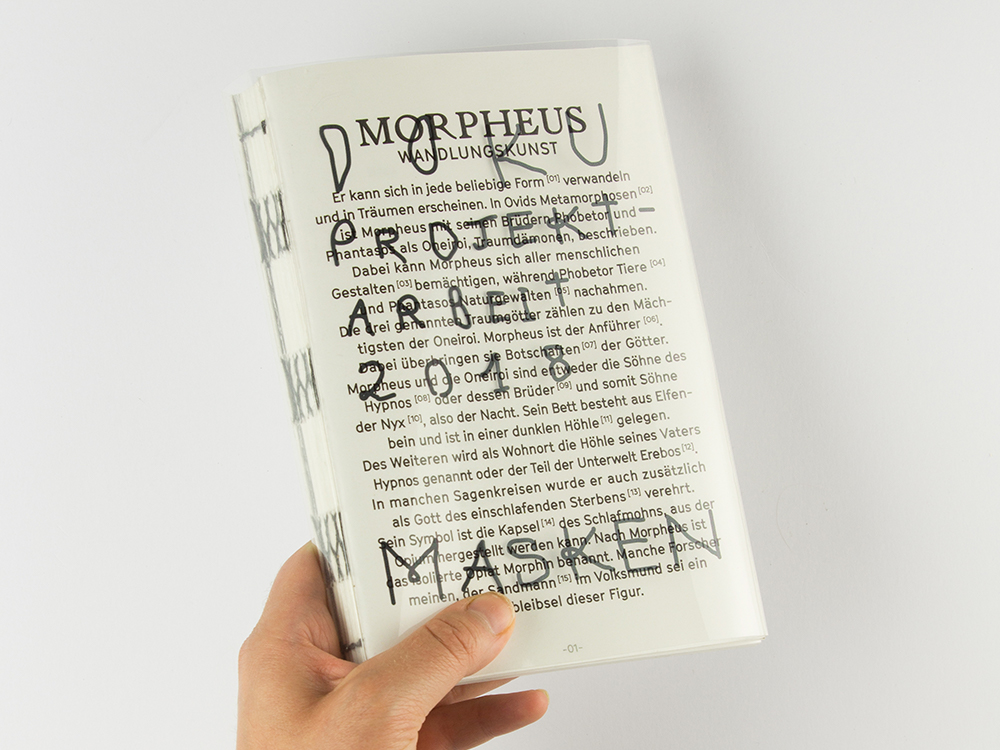 DOKU
PROJEKT-
ARBEIT
2018
MASKEN
MORPHEUS
WANDLUNGSKUNST
Er kann sich in jede beliebige Form [01] verwandeln
und in Träumen erscheinen. In Ovids Metamorphosen [02]
ist Morpheus mit seinen Brüdern Phobetor und
Phantasos als Oneiroi, Traumdämonen, beschrieben.
Dabei kann Morpheus sich aller menschlichen
Gestalten [03] bemächtigen, während Phobetor Tiere [04]
und Phantasos Naturgewalten [05] nachahmen.
Die drei genannten Traumgötter zählen zu den Mäch-
tigsten der Oneiroi. Morpheus ist der Anführer [06].
Dabei überbringen sie Botschaften [07] der Götter.
Morpheus und die Oneiroi sind entweder die Söhne des
Hypnos [08] oder dessen Brüder [09] und somit Söhne
der Nyx [10], also der Nacht. Sein Bett besteht aus Elfen-
bein und ist in einer dunklen Höhle [11] gelegen.
Des Weiteren wird als Wohnort die Höhle seines Vaters
Hypnos genannt oder der Teil der Unterwelt Erebos [12].
In manchen Sagenkreisen wurde er auch zusätzlich
als Gott des einschlafenden Sterbens [13] verehrt.
Sein Symbol ist die Kapsel [14] des Schlafmohns, aus der
Opium hergestellt werden kann. Nach Morpheus ist
das isolierte Opiat Morphin benannt. Manche Forscher
meinen, der Sandmann [15] im Volksmund sei ein
bleibsel dieser Figur.
-01-